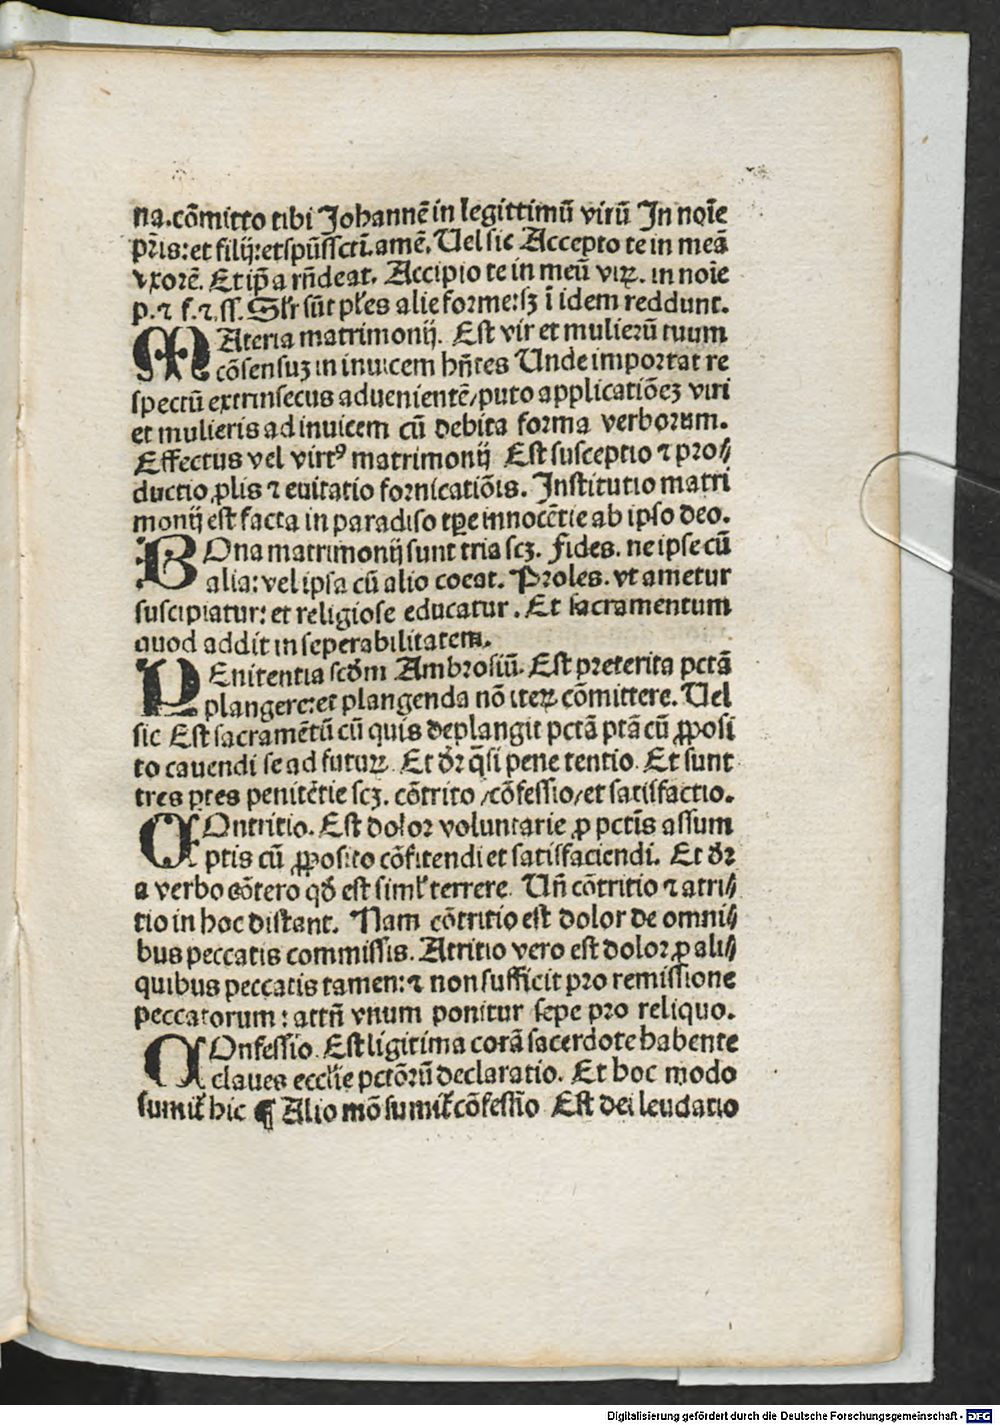 na.cōmitto tibi Johannē in legittimū virū In noīe
pr̄is: et filij: et spūssctī. amē. Uel sic Accepto te in meā
vxorē. Et ip̄a rn̄deat. Accipio te in meū viꝝ. in noīe
p. ⁊ f. ⁊ ſſ. Sl'r sūt pl'es alie forme: sꝫ ī idem reddunt.
MAteria matrimonij. Est vir et mulierū tuum
cōsensuꝫ in inuicem hn̄tes Unde importat re
spectū extrinsecus aduenientē/ puto applicatiōeꝫ viri
et mulieris ad inuicem cū debita forma verborum.
Effectus vel virtꝰ matrimonij Est susceptio ⁊ pro⸗
ductio ꝓlis ⁊ euitatio fornicatiōis. Institutio matri
monij est facta in paradiso tꝑe innocētie ab ipso deo.
BOna matrimonij sunt tria scꝫ. Fides. ne ipse cū
alia: vel ipsa cū alio coeat. Proles. vt ametur
suscipiatur: et religiose educatur. Et sacramentum
quod addit inseperabilitatem.
PEnitentia scd̄m Ambrosiū. Est preterita pctā
plangere: et plangenda nō iteꝝ cōmittere. Uel
sic Est sacramētū cū quis deplangit pctā ptā cū ꝓposi
to cauendi se ad futuꝝ. Et dr̄ q̄si pene tentio. Et sunt
tres ꝑtes penitētie scꝫ. cōtrito /cōfessio/ et satisfactio.
COntritio. Est dolor voluntarie ꝓ pctīs assum
ptis cū ꝓposito cōfitendi et satisfaciendi. Et dr̄
a verbo cōtero qd̄ est siml' terrere. Un̄ cōtritio ⁊ atri⸗
tio in hoc distant. Nam cōtritio est dolor de omni⸗
bus peccatis commissis. Atritio vero est dolor ꝓ ali⸗
quibus peccatis tamen: ⁊ non sufficit pro remissione
peccatorum: attn̄ vnum ponitur sepe pro reliquo.
COnfessio. Est ligitima corā sacerdote habente
claues eccl'ie pctōrū declaratio. Et hoc modo
sumit̄ hic ¶ Alio mō sumit̄ cōfessio Est dei leudatio
Digitalisierung gefördert durch die Deutsche Forschungsgemeinschaft - DFG